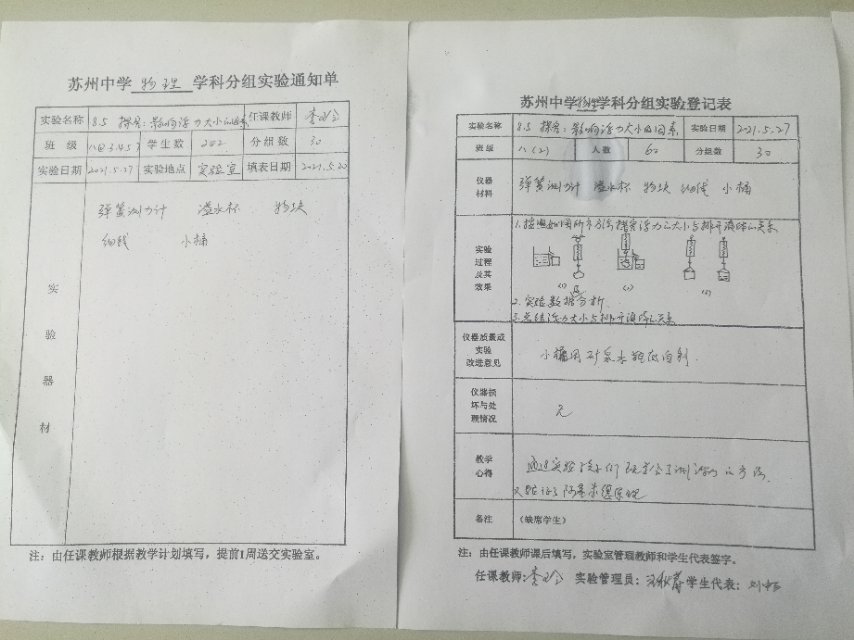 苏州中学 物理 学科分组实验通知单
实验名称 8.5 探究:影响浮力大小的因素 任课教师
班级 学生数 202 分组数 30
实验日期 2021.5.27 实验地点 实验室 填表日期 2021.5.20
弹簧测力计 溢水杯 物块
细线 小桶
实验器材
注:由任课教师根据教学计划填写,提前1周送交实验室。
苏州中学物理学科分组实验登记表
实验名称 8.5 探究:影响浮力大小的因素 实验日期 2021.5.27
班级 八(2) 人数 60 分组数 30
仪器材料 弹簧测力计 溢水杯 物块 细线 小桶
实验过程及其效果
1.按照如图所示方法探究浮力的大小与排开液体的关系
2.实验数据分析
3.总结浮力大小与排开液体的关系
仪器质量或实验改进意见 小桶用矿泉水瓶做自制
仪器损坏与处理情况 无
教学心得 通过实验孩子们既学会了测浮力的方法,
又验证了阿基米德原理
备注 (缺席学生)
注:由任课教师课后填写,实验室管理教师和学生代表签字。
任课教师: 实验管理员: 学生代表: